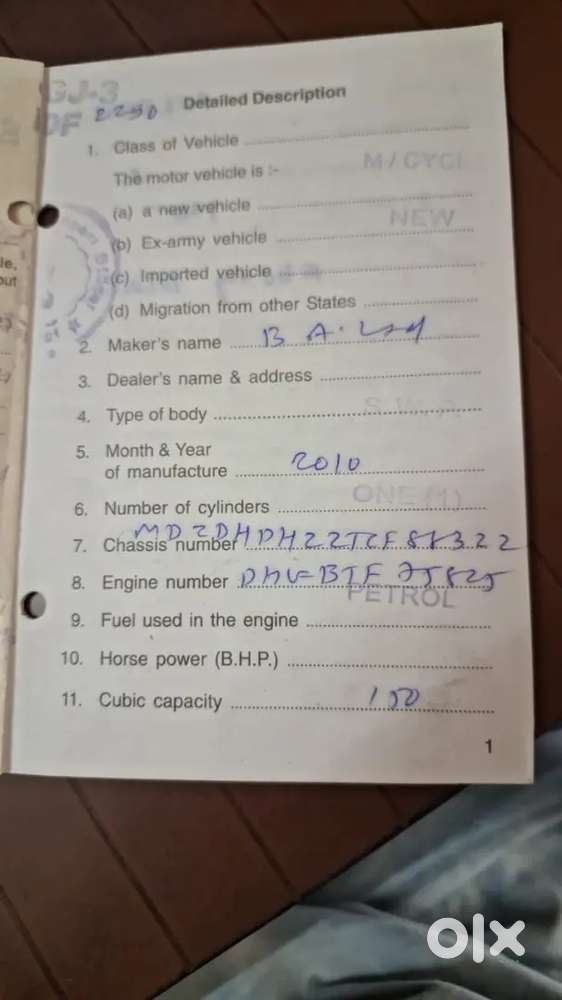 GJ-3
DF 2290
Detailed Description
1. Class of Vehicle
M/CYCL
The motor vehicle is :-
(a) a new vehicle
NEW
(b) Ex-army vehicle
(c) Imported vehicle
(d) Migration from other States
2. Maker's name
3. Dealer's name & address
4. Type of body
5. Month & Year
of manufacture 2010
6. Number of cylinders
ONE (1)
7. Chassis number
8. Engine number
PETROL
9. Fuel used in the engine
10. Horse power (B.H.P.)
11. Cubic capacity 150
1
olx